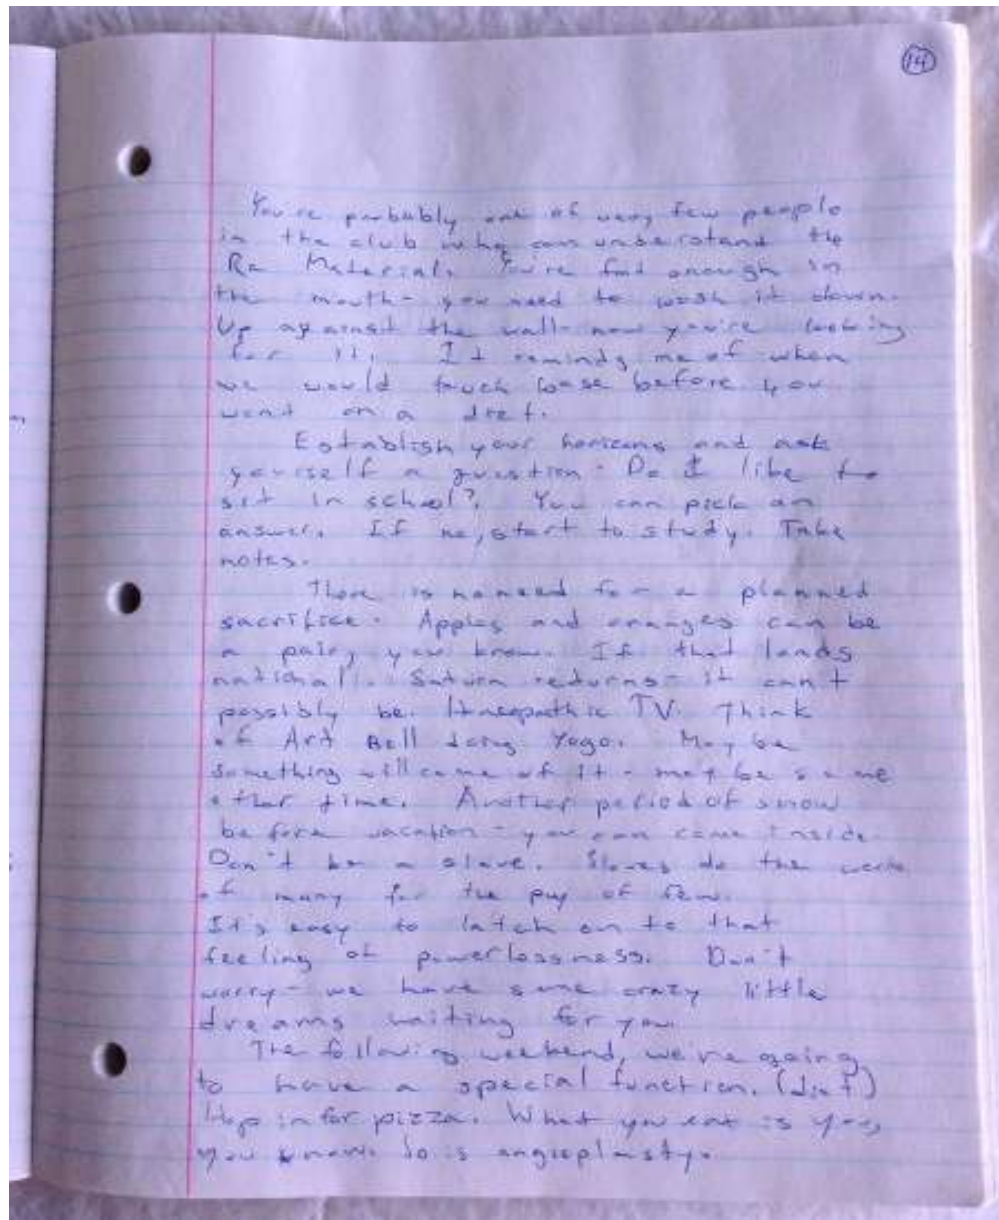 14
You're parbably one of very few people
in the club who can understand the
Ra Material. You're fed enough in
the mouth - you need to wash it down.
Up against the wall - now you're looking
for it. It reminds me of when
we would touch base before you
went on a diet.
Establish your horizons and ask
yourself a question - Do I like to
sit in school? You can pick an
answer. If no, start to study. Take
notes.
There is no need for a planned
sacrifice. Apples and oranges can be
a pair, you know. If that lands
national. Saturn returns - it can't
possibly be. TV. Think
of Art Bell doing Yoga. Maybe
something will come of it - maybe some
other time. Another period of snow
before vacation - you can come inside.
Don't be a slave. Slaves do the work
of many for the pay of few.
It's easy to latch on to that
feeling of powerlessness. Don't
worry - we have some crazy little
dreams waiting for you.
The following weekend, we're going
to have a special function. (diet)
Hop in for pizza. What you eat is you,
you know. So is angioplasty.